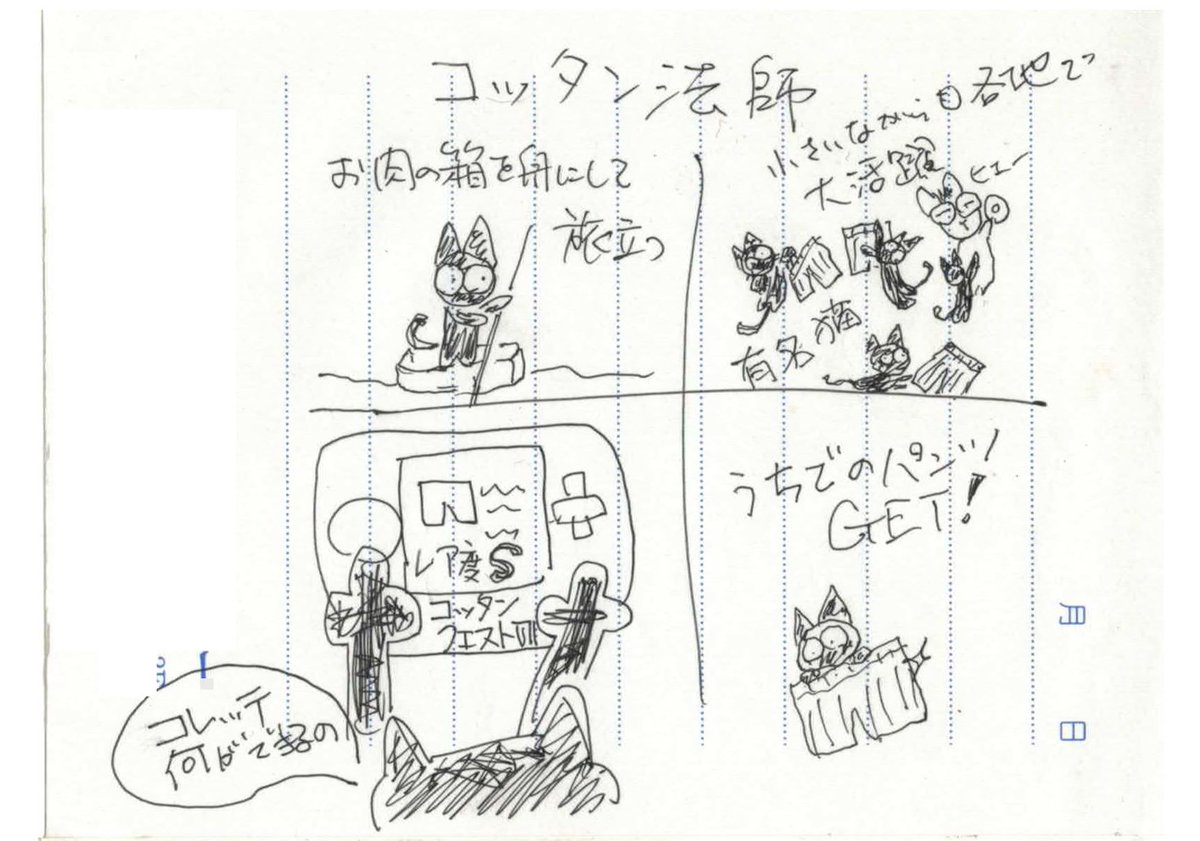 コッタン法師
お肉の箱を舟にして
旅立つ
小さいながらも各地で
大活躍
ヒュー
有名猫
レア度S
コッタン
クエストVIII
コレッテ
何ができるの
うちでのパンツ
GET!
月
日